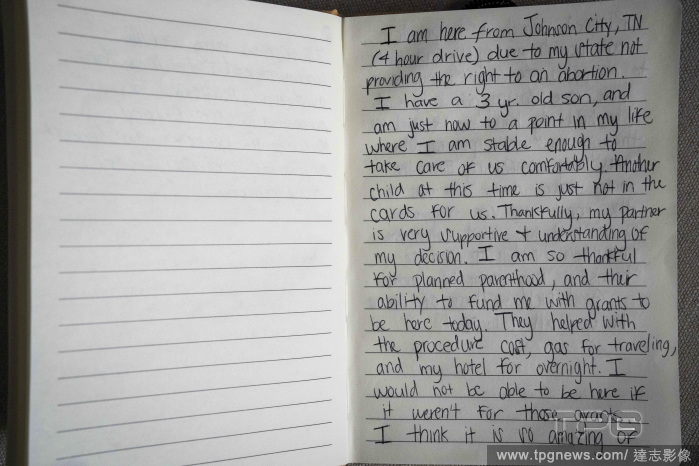 I am here from Johnson City, TN
(4 hour drive) due to my state not
providing the right to an abortion.
I have a 3 yr. old son, and
am just now to a point in my life
where I am stable enough to
take care of us comfortably. Another
child at this time is just not in the
cards for us. Thankfully, my partner
is very supportive + understanding of
my decision. I am so thankful
for planned parenthood, and their
ability to fund me with grants to
be here today. They helped with
the procedure cost, gas for traveling,
and my hotel for overnight. I
would not be able to be here if
it weren't for those grants.
I think it is so amazing of
TPG
www.tpgnews.com / 達志影像